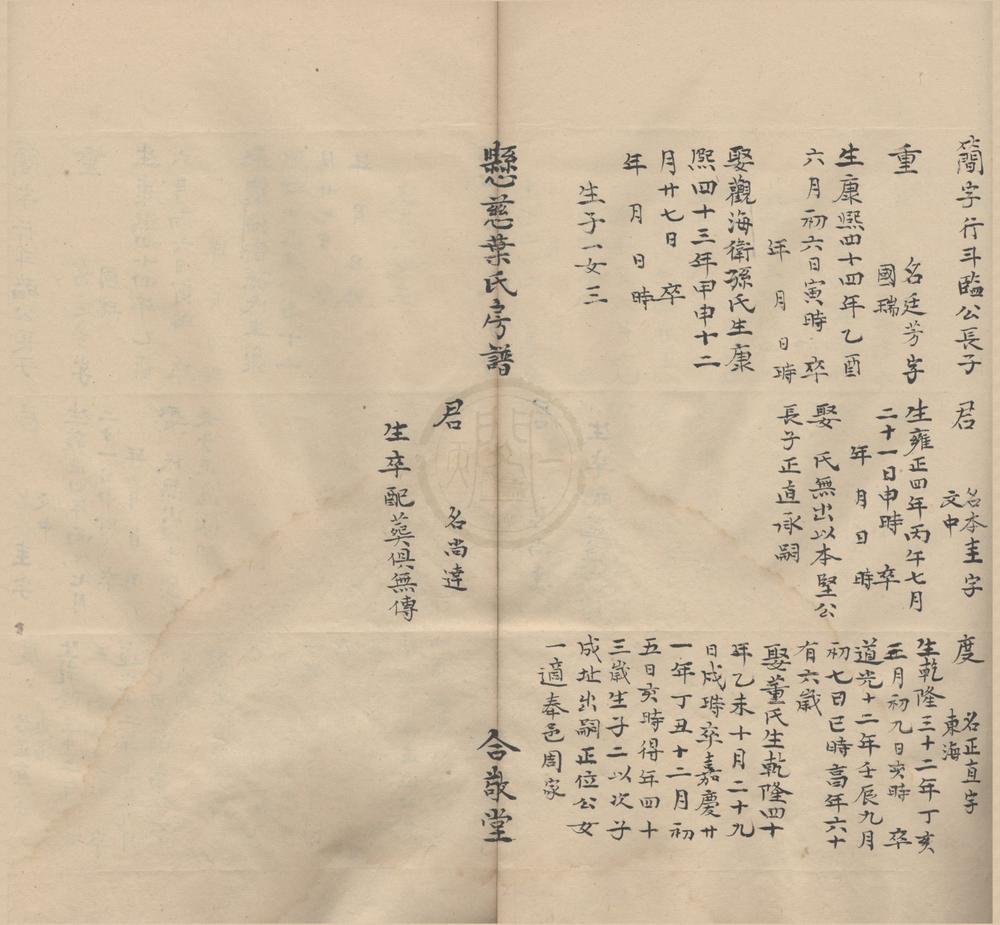 簡字行斗臨公長子
重
名廷芳字
國瑞
生康熙四十四年乙酉
六月初六日寅時　卒
年　月　日時
娶觀海衛孫氏生康
熙四十三年甲申十二
月廿七日　卒
年　月　日時
生子一女三
君
名本圭字
文中
生雍正四年丙午七月
二十一日申時　卒
年　月　日　時
娶　氏無出以本堅公
長子正直承嗣
度
名正直字
東海
生乾隆三十二年丁亥
五月初九日亥時　卒
道光十二年壬辰九月
初七日巳時高年六十
有六歲
娶董氏生乾隆四十
年乙未十月二十九
日戌時卒嘉慶廿
一年丁丑十二月初
五日亥時得年四十
三歲生子二以次子
成址出嗣正位公女
一適奉邑周家
懸慈葉氏房譜
合敬堂
君
名尚達
生卒配塟俱無傳